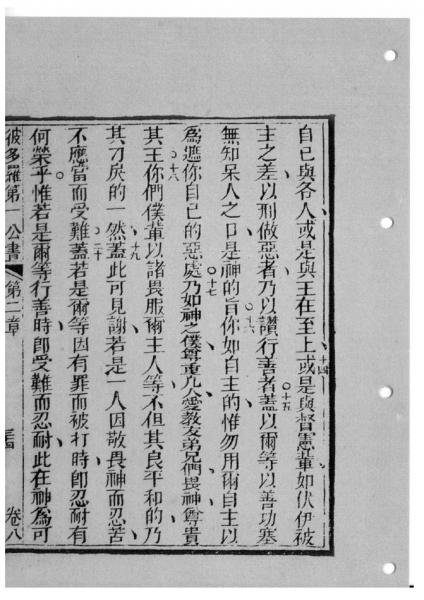 自己與各人或是與王在至上或是與督憲輩如伏伊被
十四
主之差以刑做惡者乃以讚行善者蓋以爾等以善功塞
十五
無知呆人之口是神的旨你如自主的惟勿用爾自主以
十六
為遮你自己的惡處乃如神之僕尊重凡人愛教友弟兄們畏神尊貴
十七
其王你們僕輩以諸畏服爾主人等不但其良平和的乃
十八
其刁戾的一然蓋此可見謝若是一人因敬畏神而忍苦
十九
不應當而受難蓋若是爾等因有罪而被打時卽忍耐有
二十
何榮乎惟若是爾等行善時卽受難而忍耐此在神為可
彼多羅第一公書 第二章 卷八